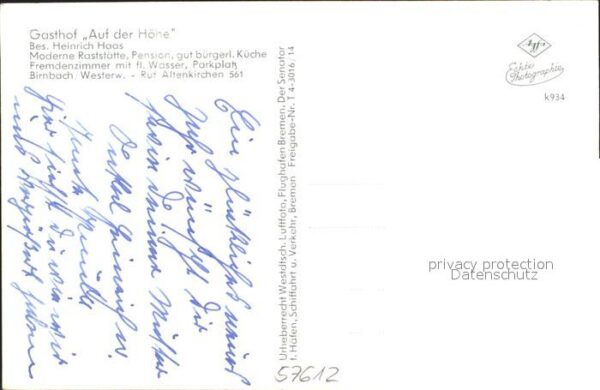 Gasthof „Auf der Höhe"
Bes. Heinrich Haas
Moderne Raststätte, Pension, gut bürgerl. Küche
Fremdenzimmer mit fl. Wasser, Parkplatz
Birnbach/Westerw. - Ruf Altenkirchen 561
Agfa
Echte
Photographie
k934
Urheberrecht Westdtsch. Luftfoto, Flughafen Bremen, Der Senator
f. Häfen, Schiffahrt u. Verkehr, Bremen Freigabe-Nr. T 4-3016, 14
Ein glückliches neues
Jahr wünscht Dir
Heinrich
Familie
Hier siehst Du wo wir
uns haben
privacy protection
Datenschutz
57612